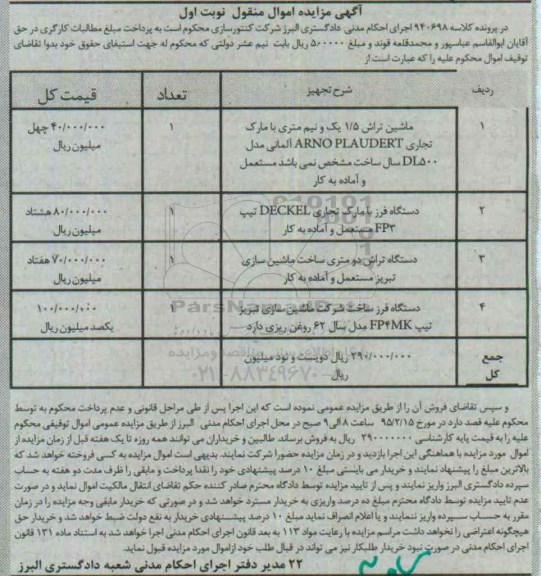 آگهی مزایده اموال منقول نوبت اول
در پرونده کلاسه ۹۴۰۶۹۸ اجرای احکام مدنی دادگستری البرز شرکت کنتورسازی محکوم است به پرداخت مبلغ مطالبات کارگری در حق
آقایان ابوالقاسم عباسپور و محمدقلعه قوند و مبلغ ۵۰۰۰۰۰ ریال بابت نیم عشر دولتی که محکوم له جهت استیفای حقوق خود بدوا تقاضای
توقیف اموال محکوم علیه را که عبارت است از
ردیف شرح تجهیز تعداد قیمت کل
۱ ماشین تراش ۱/۵ یک و نیم متری با مارک ۱ ۴۰/۰۰۰/۰۰۰ چهل
تجاری ARNO PLAUDERT آلمانی مدل میلیون ریال
DL۵۰۰ سال ساخت مشخص نمی باشد مستعمل
و آماده به کار
۲ دستگاه فرز با مارک تجاری DECKEL تیپ ۱ ۸۰/۰۰۰/۰۰۰ هشتاد
FP۳ مستعمل و آماده به کار میلیون ریال
۳ دستگاه تراش دو متری ساخت ماشین سازی ۱ ۷۰/۰۰۰/۰۰۰ هفتاد
تبریز مستعمل و آماده به کار میلیون ریال
۴ دستگاه فرز ساخت شرکت ماشین سازی تبریز ۱ ۱۰۰/۰۰۰/۰۰۰
تیپ FP۴MK مدل سال ۶۲ روغن ریزی دارد یکصد میلیون ریال
جمع کل ۲۹۰/۰۰۰/۰۰۰ ریال دویست و نود میلیون
ریال
ParsNamadData
۰۲۱-۸۸۳۴۹۶۷۰
و سپس تقاضای فروش آن را از طریق مزایده عمومی نموده است که این اجرا پس از طی مراحل قانونی و عدم پرداخت محکوم به توسط
محکوم علیه قصد دارد در مورخ ۹۵/۲/۱۵ ساعت ۸ الی ۹ صبح در محل اجرای احکام مدنی البرز از طریق مزایده عمومی اموال توقیفی محکوم
علیه را به قیمت پایه کارشناسی ۲۹۰۰۰۰۰۰۰ ریال به فروش برساند. طالبین و خریداران می توانند همه روزه تا یک هفته قبل از زمان مزایده از
اموال مورد مزایده با هماهنگی این اجرا بازدید و در زمان مزایده حضورا شرکت نمایند. بدیهی است اموال مزایده به کسی فروخته خواهد شد که
بالاترین مبلغ را پیشنهاد نمایند و خریدار می بایستی مبلغ ۱۰ درصد پیشنهادی خود را نقدا پرداخت و مابقی را ظرف مدت دو هفته به حساب
سپرده دادگستری البرز واریز نمایند و پس از تایید مزایده توسط دادگاه محترم صادر کننده حکم تقاضای انتقال مالکیت اموال نماید و در صورت
عدم تایید مزایده توسط دادگاه محترم مبلغ ده درصد واریزی به خریدار مسترد خواهد شد و در صورتی که خریدار مابقی وجه مزایده را در زمان
مقرر به حساب سپرده واریز ننمایند و یا اعلام انصراف نماید مبلغ ۱۰ درصد پیشنهادی خریدار به نفع دولت ضبط خواهد شد و خریدار حق
هیچگونه اعتراضی را نخواهد داشت مراسم مزایده با رعایت مواد ۱۱۳ به بعد قانون اجرای احکام مدنی اجرا خواهد شد به استناد ماده ۱۳۱ قانون
اجرای احکام مدنی در صورت نبود خریدار طلبکار نیز می تواند در قبال طلب خود ازاموال مورد مزایده قبول نماید.
۲۲ مدیر دفتر اجرای احکام مدنی شعبه دادگستری البرز